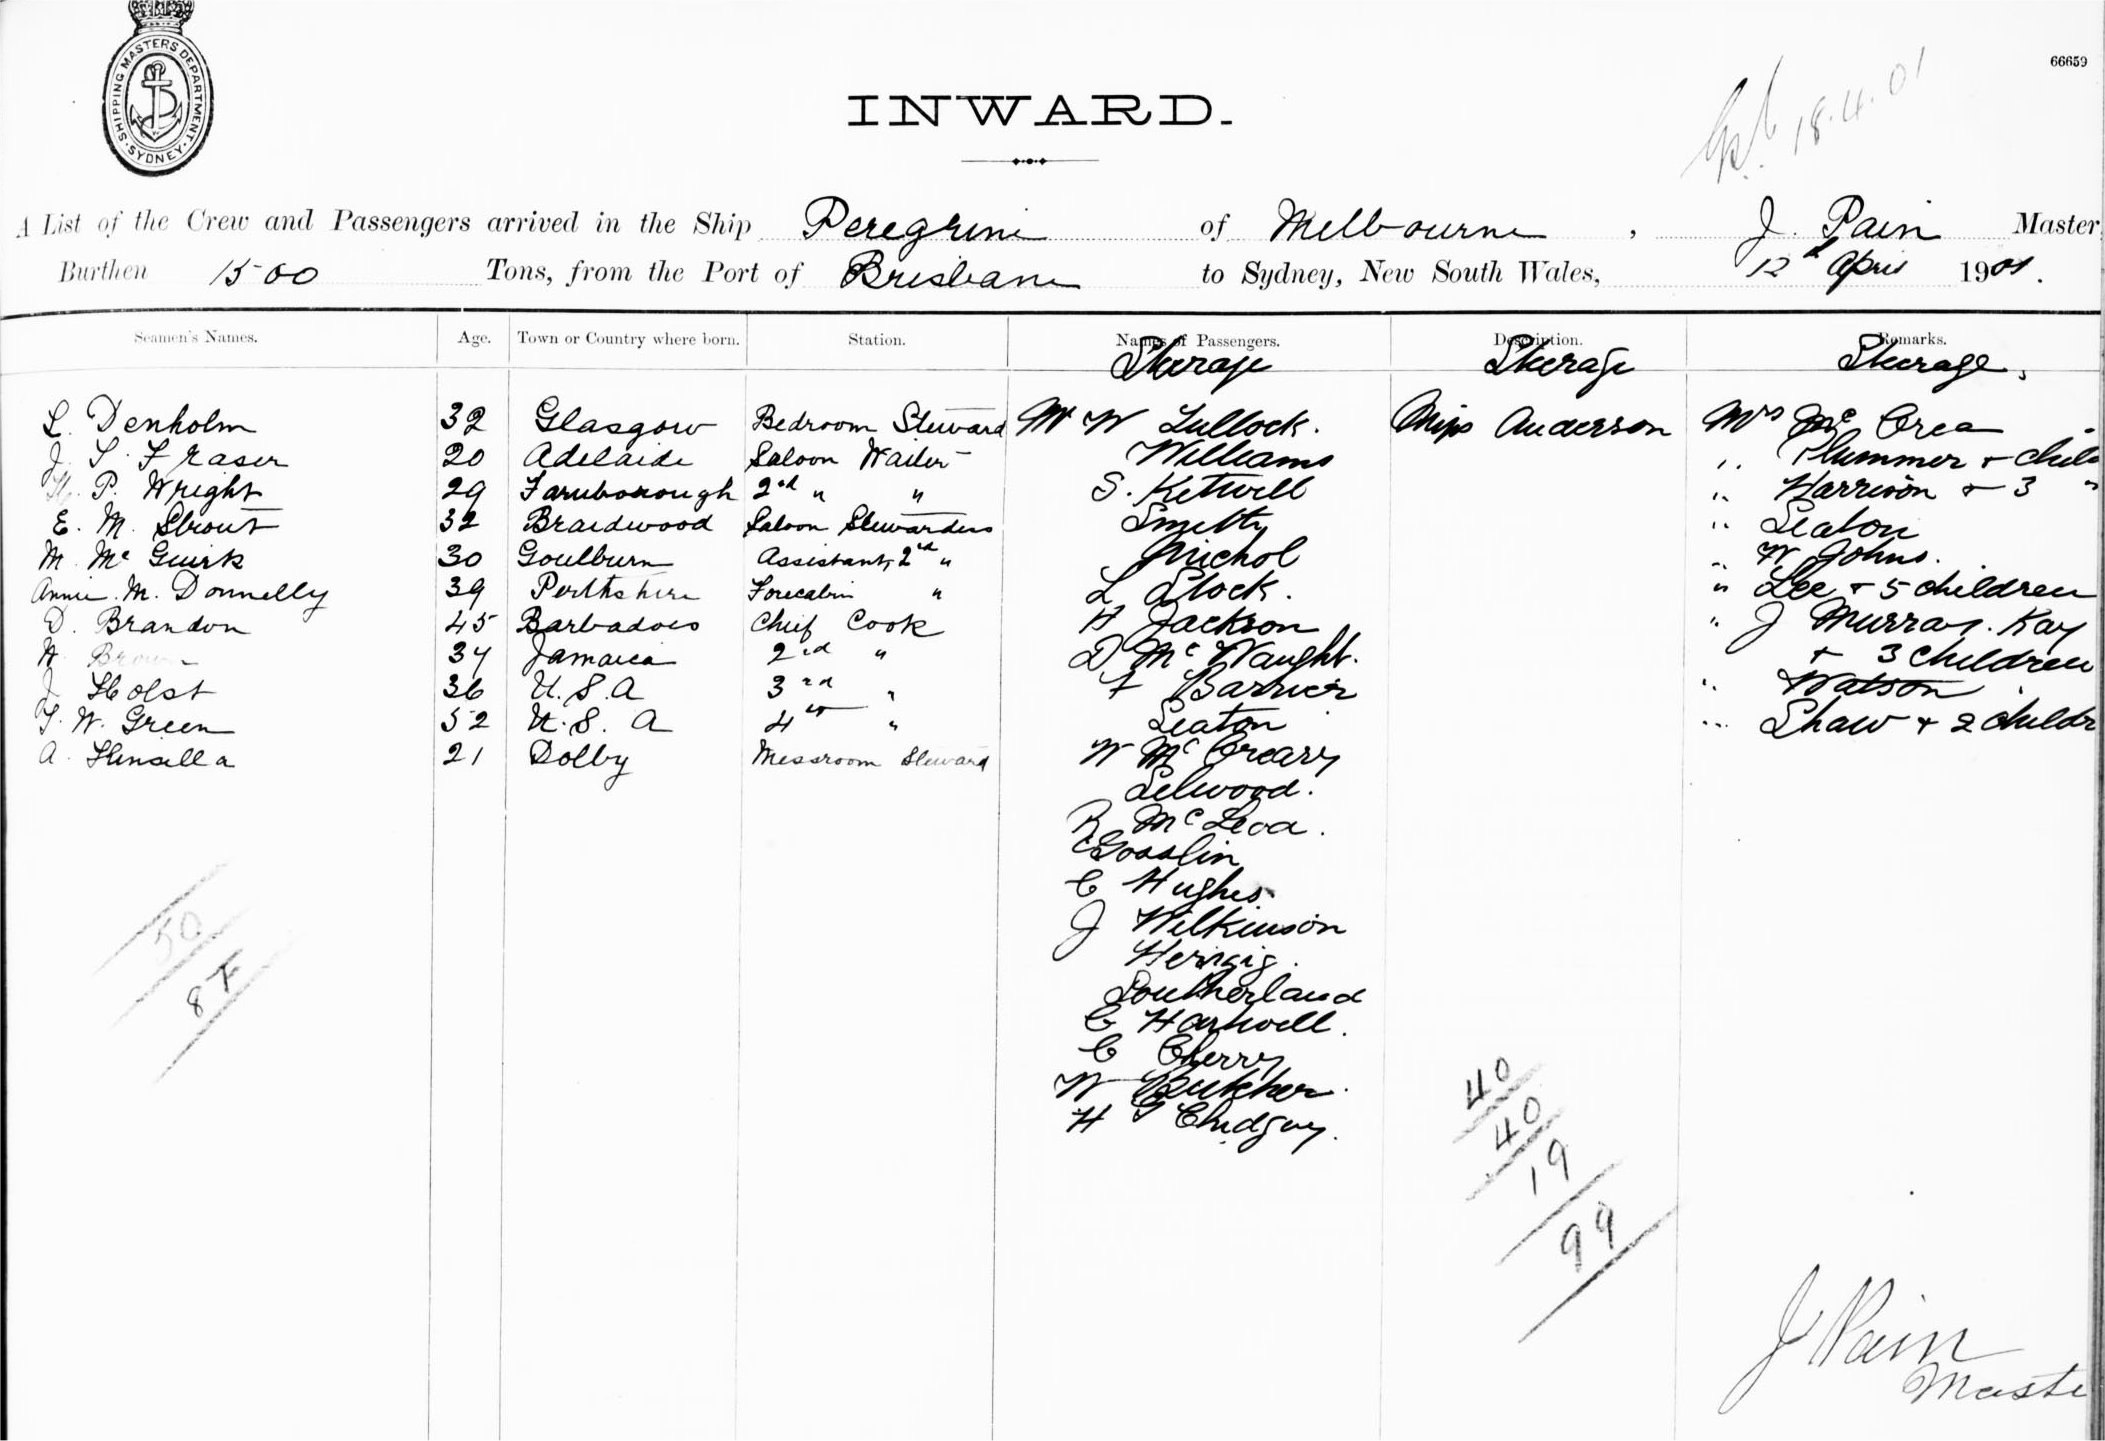 SHIPPING MASTERS DEPARTMENT. SYDNEY.
66659
18.4.01
INWARD.
A List of the Crew and Passengers arrived in the Ship Peregrine of Melbourne, J. Pain Master
Burthen 1500 Tons, from the Port of Brisbane to Sydney, New South Wales, 12th April 1901.
Seamen's Names. Age. Town or Country where born. Station. Names of Passengers. Description. Remarks.
Steerage Steerage Steerage.
L. Denholm 32 Glasgow Bedroom Steward Mr W Tullock. Miss Anderson Mrs McCrea
J. S. Fraser 20 Adelaide Saloon Waiter Williams " Plummer + child
H. P. Wright 29 Farnborough 2nd " " S. Ketwell " Harrison + 3 "
E. M. Strout 32 Braidwood Saloon Stewardess Smith " Seaton
M. McGuirk 30 Goulburn Assistant, 2nd " Nichol " W Johns.
Annie. M. Donnelly 39 Perthshire Forecabin " L Stock. " Lee + 5 children
D. Brandon 45 Barbadoes Chief Cook H Jackson " J Murray. Kay
W Brown 34 Jamaica 2nd " D McNaught. + 3 children
J Holst 36 U.S.A 3rd " F Barrier " Watson
T. W. Green 52 U.S.A 4th " Seaton " Shaw + 2 childr
A. Hinsella 21 Dolby Messroom Steward W McCreary
Selwood.
R McLeod.
Gosslin
C Hughes
J Wilkinson
Herwig.
Southerland
C Hartwell.
C Cherry
W Butcher.
H G Chidgey.
50
87
40
40
19
99
J Pain
Maste